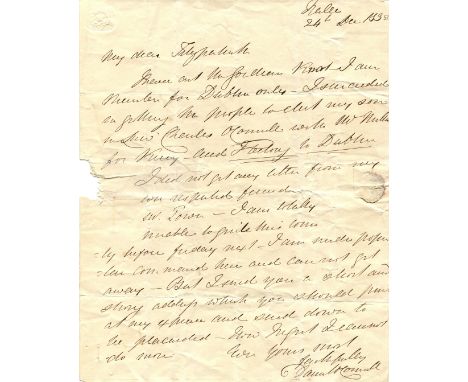 Tralee
24th Dec 183
My dear Fitzpatrick
I have cut the Gordian Knot I am
Member for Dublin only - I succeeded
in getting the people to elect my son
in law Charles O'Connell with Mr Mullins
for Kerry - and I belong to Dublin
I did not get any letter from my
own respected friend
Mr. - I am totally
unable to quit this coun
-ty before friday next - I am under popu
-lar command here and cannot get
away - But I send you a short and
strong address which you should print
at my expence and send down to
be placarded - You I cannot
do more
Yours most
faithfully
Daniel O'Connell